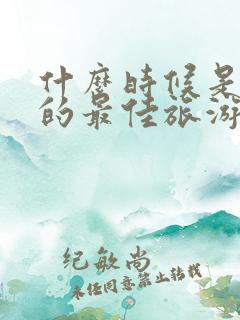 什麼時候是
的最佳旅游
纪敏尚
未经同意禁止转载